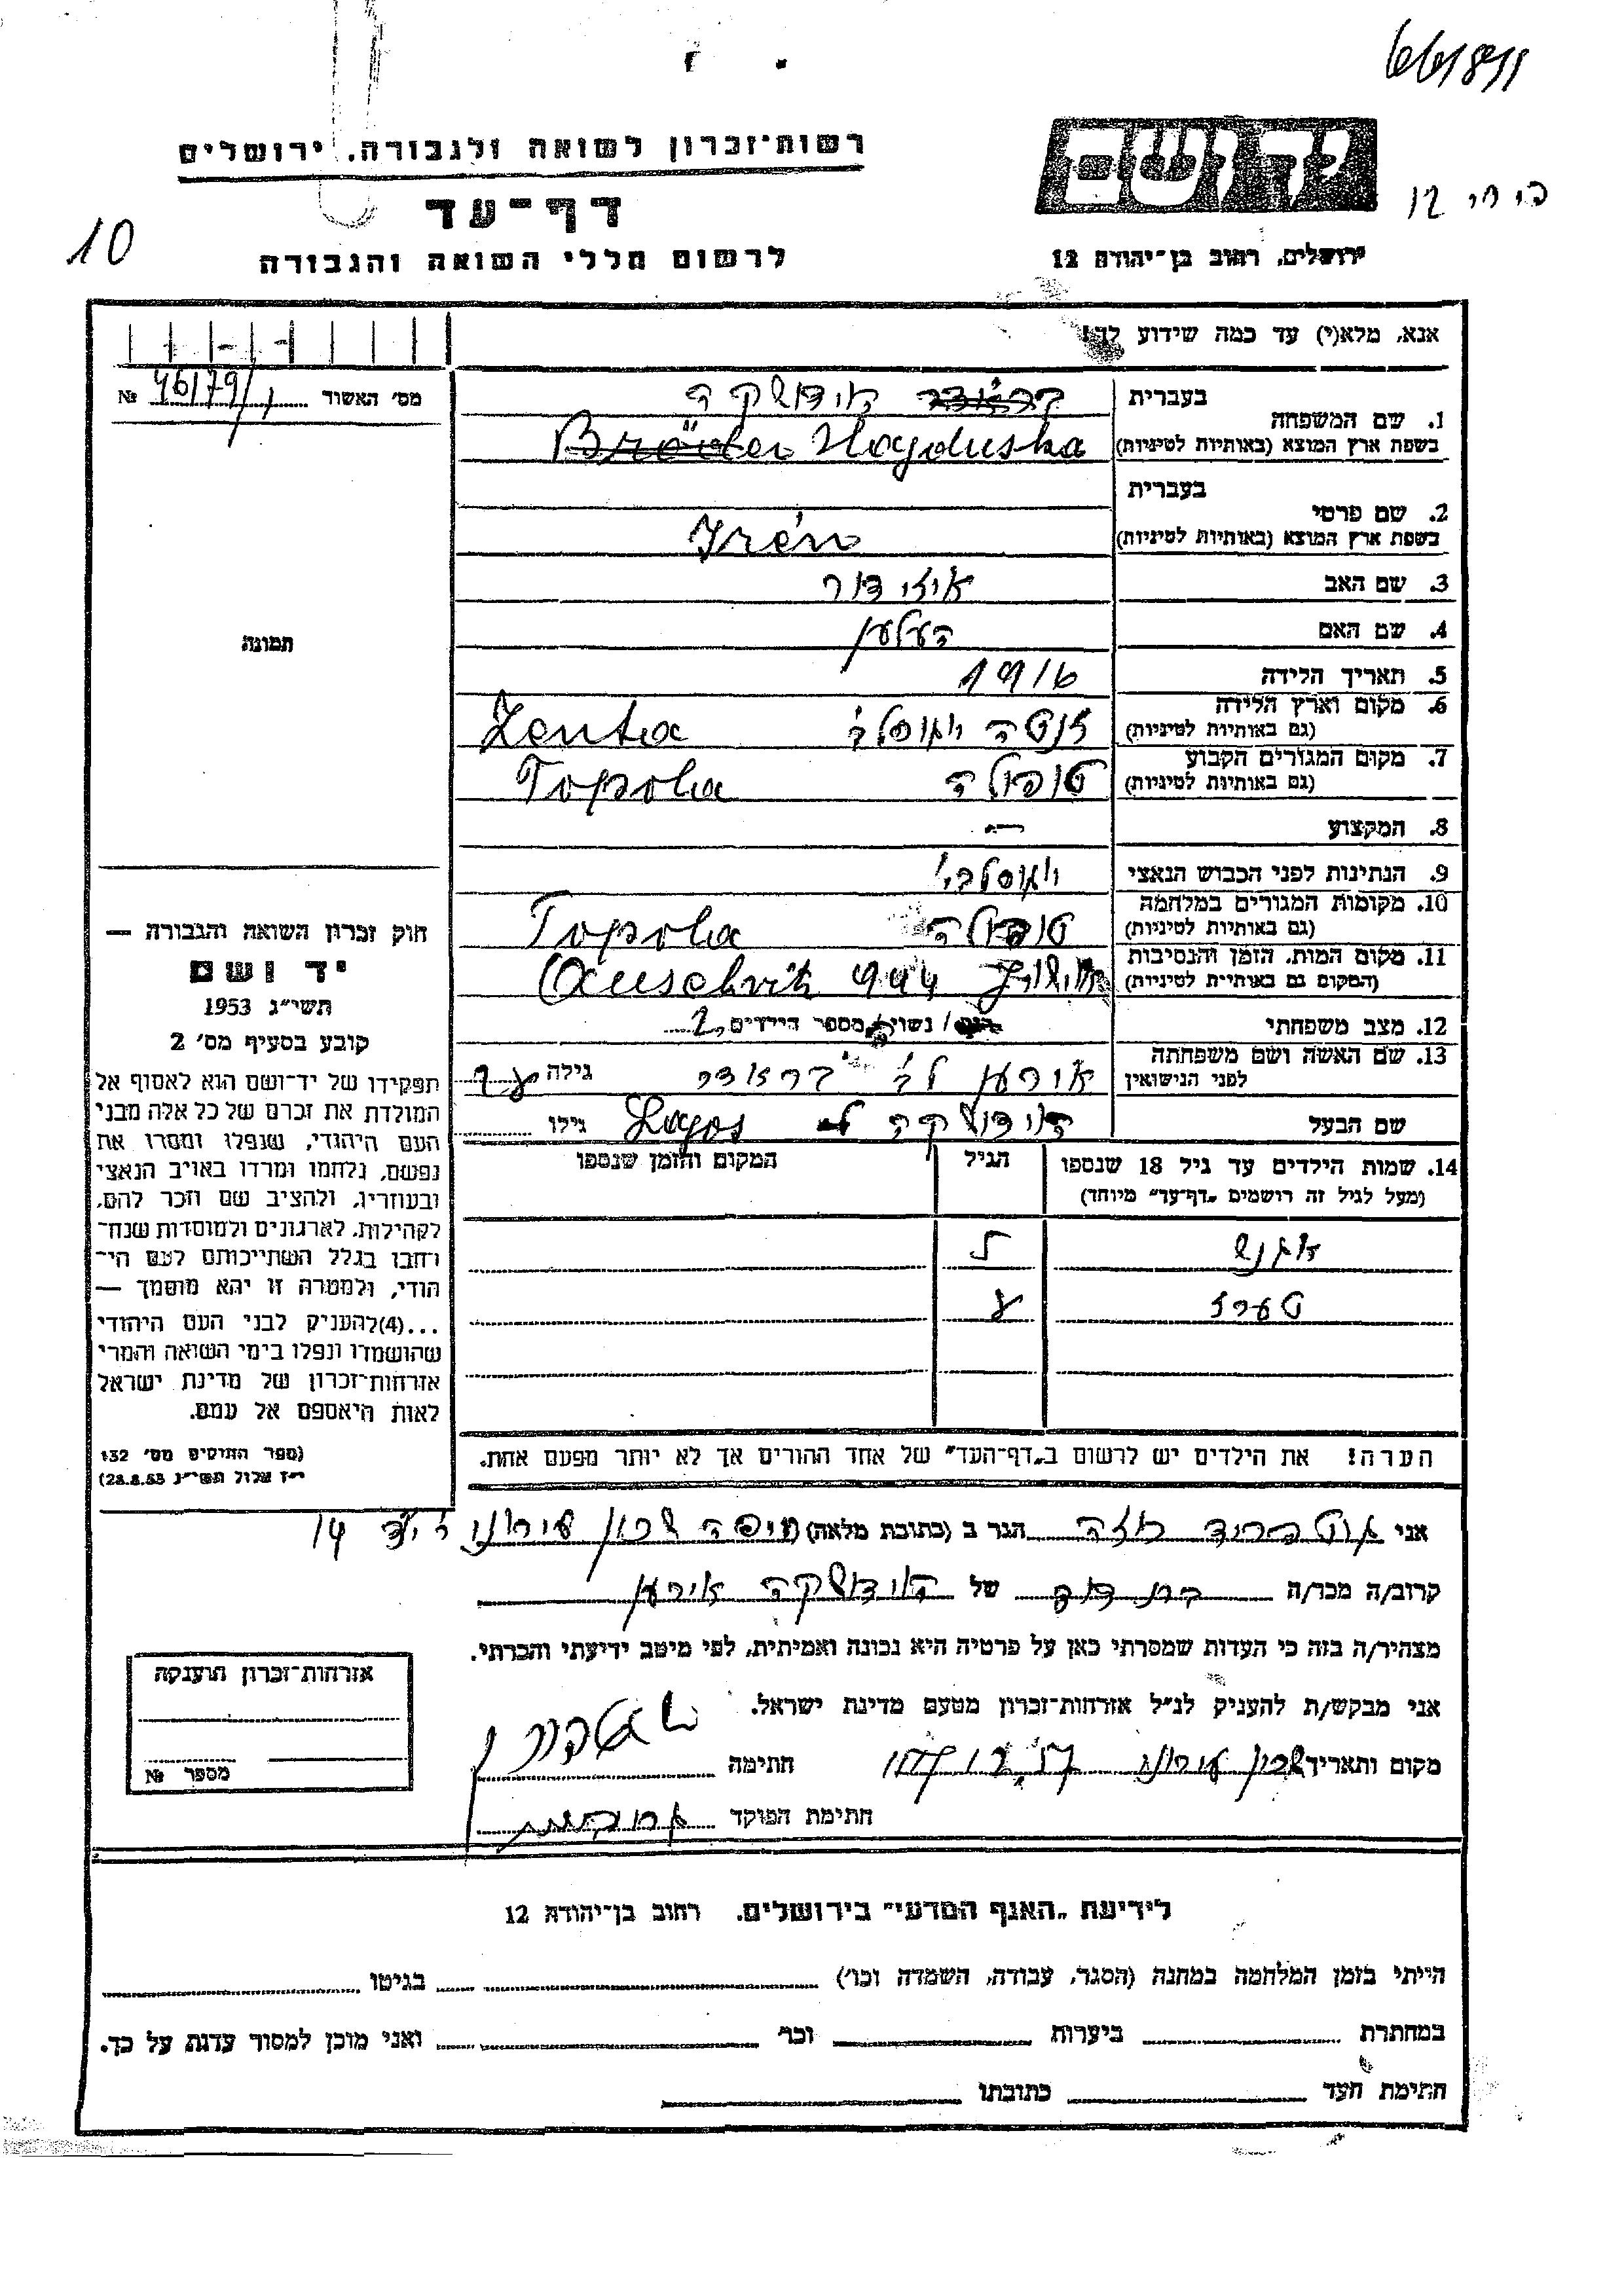 661811
רשות־זכרון לשואה ולגבורה, ירושלים
יד ושם
דף־עד
10
לרשום חללי השואה והגבורה
ירושלים, רחוב בן־יהודה 12
אנא, מלא(י) עד כמה שידוע לך!
מס' האשור 46179/1 №
1. שם המשפחה
בעברית
בראדר הידושקה
בשפת ארץ המוצא (באותיות לטיניות)
Bröder Hayduska
2. שם פרטי
בעברית
בשפת ארץ המוצא (באותיות לטיניות)
Irén
3. שם האב איזידור
4. שם האם העלען
תמונה
5. תאריך הלידה 1916
6. מקום וארץ הלידה
(גם באותיות לטיניות)
זנטה יוגוסלבי Zenta
7. מקום המגורים הקבוע
(גם באותיות לטיניות)
טופולה Topola
8. המקצוע —
9. הנתינות לפני הכבוש הנאצי יוגוסלבי
10. מקומות המגורים במלחמה
(גם באותיות לטיניות)
טופולה Topola
11. מקום המות, הזמן והנסיבות
(המקום גם באותיות לטיניות)
944 Auschvitz
12. מצב משפחתי רווק / נשוי / מספר הילדים 2
13. שם האשה ושם משפחתה
לפני הנישואין
אירען לב' בראדר גילה
שם הבעל הידושקה Lagos גילו
14. שמות הילדים עד גיל 18 שנספו
(מעל לגיל זה רושמים „דף־עד" מיוחד)
הגיל
המקום והזמן שנספו
אגנש
טערז
הערה! את הילדים יש לרשום ב„דף־העד" של אחד ההורים אך לא יותר מפעם אחת.
חוק זכרון השואה והגבורה —
יד ושם
תשי"ג 1953
קובע בסעיף מס' 2
תפקידו של יד־ושם הוא לאסוף אל
המולדת את זכרם של כל אלה מבני
העם היהודי, שנפלו ומסרו את
נפשם, נלחמו ומרדו באויב הנאצי
ובעוזריו, ולהציב שם וזכר להם,
לקהילות, לארגונים ולמוסדות שנח־
רחבו בגלל השתייכותם לעם הי־
הודי, ולמטרה זו יהא מוסמך —
...(4)להעניק לבני העם היהודי
שהושמדו ונפלו בימי השואה והמרי
אזרחות־זכרון של מדינת ישראל
לאות היאספם אל עמם.
(ספר החוקים מס' 132
י"ז אלול תשי"ג 28.8.53)
אני רוזה הגר ב (כתובת מלאה) חיפה שכון 14
קרוב/ה מכר/ה בת דוד של הידושקה אירען
מצהיר/ה בזה כי העדות שמסרתי כאן על פרטיה היא נכונה ואמיתית, לפי מיטב ידיעתי והכרתי.
אני מבקש/ת להעניק לנ"ל אזרחות־זכרון מטעם מדינת ישראל.
מקום ותאריך שכון חתימה
חתימת הפוקד
אזרחות־זכרון הוענקה
מספר №
לידיעת „האגף המדעי" בירושלים, רחוב בן־יהודה 12
הייתי בזמן המלחמה במחנה (הסגר, עבודה, השמדה וכו') בגיטו
במחתרת ביערות וכו' ואני מוכן למסור עדות על כך.
חתימת העד כתובתו